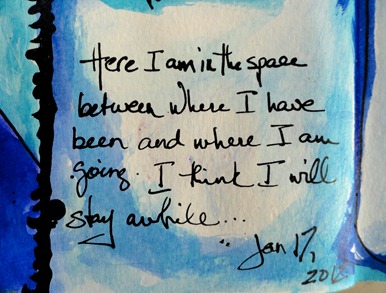 Here I am in the space
between where I have
been and where I am
going. I think I will
stay awhile...
Jan 17,